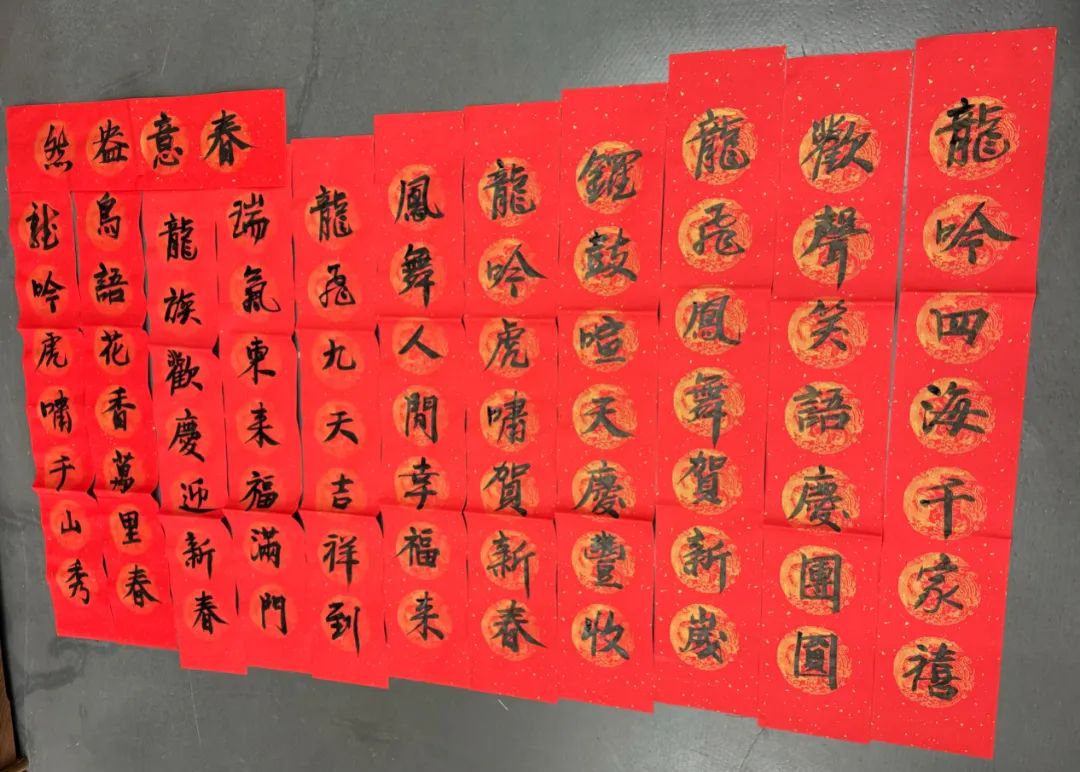 龍吟四海千家禧
歡聲笑語慶團圓
龍飛鳳舞賀新歲
鑼鼓喧天慶豐收
龍吟虎嘯賀新春
鳳舞人間幸福来
龍飛九天吉祥到
瑞氣東来福滿門
龍族歡慶迎新春
春意盎然
鳥語花香萬里春
龍吟虎嘯千山秀